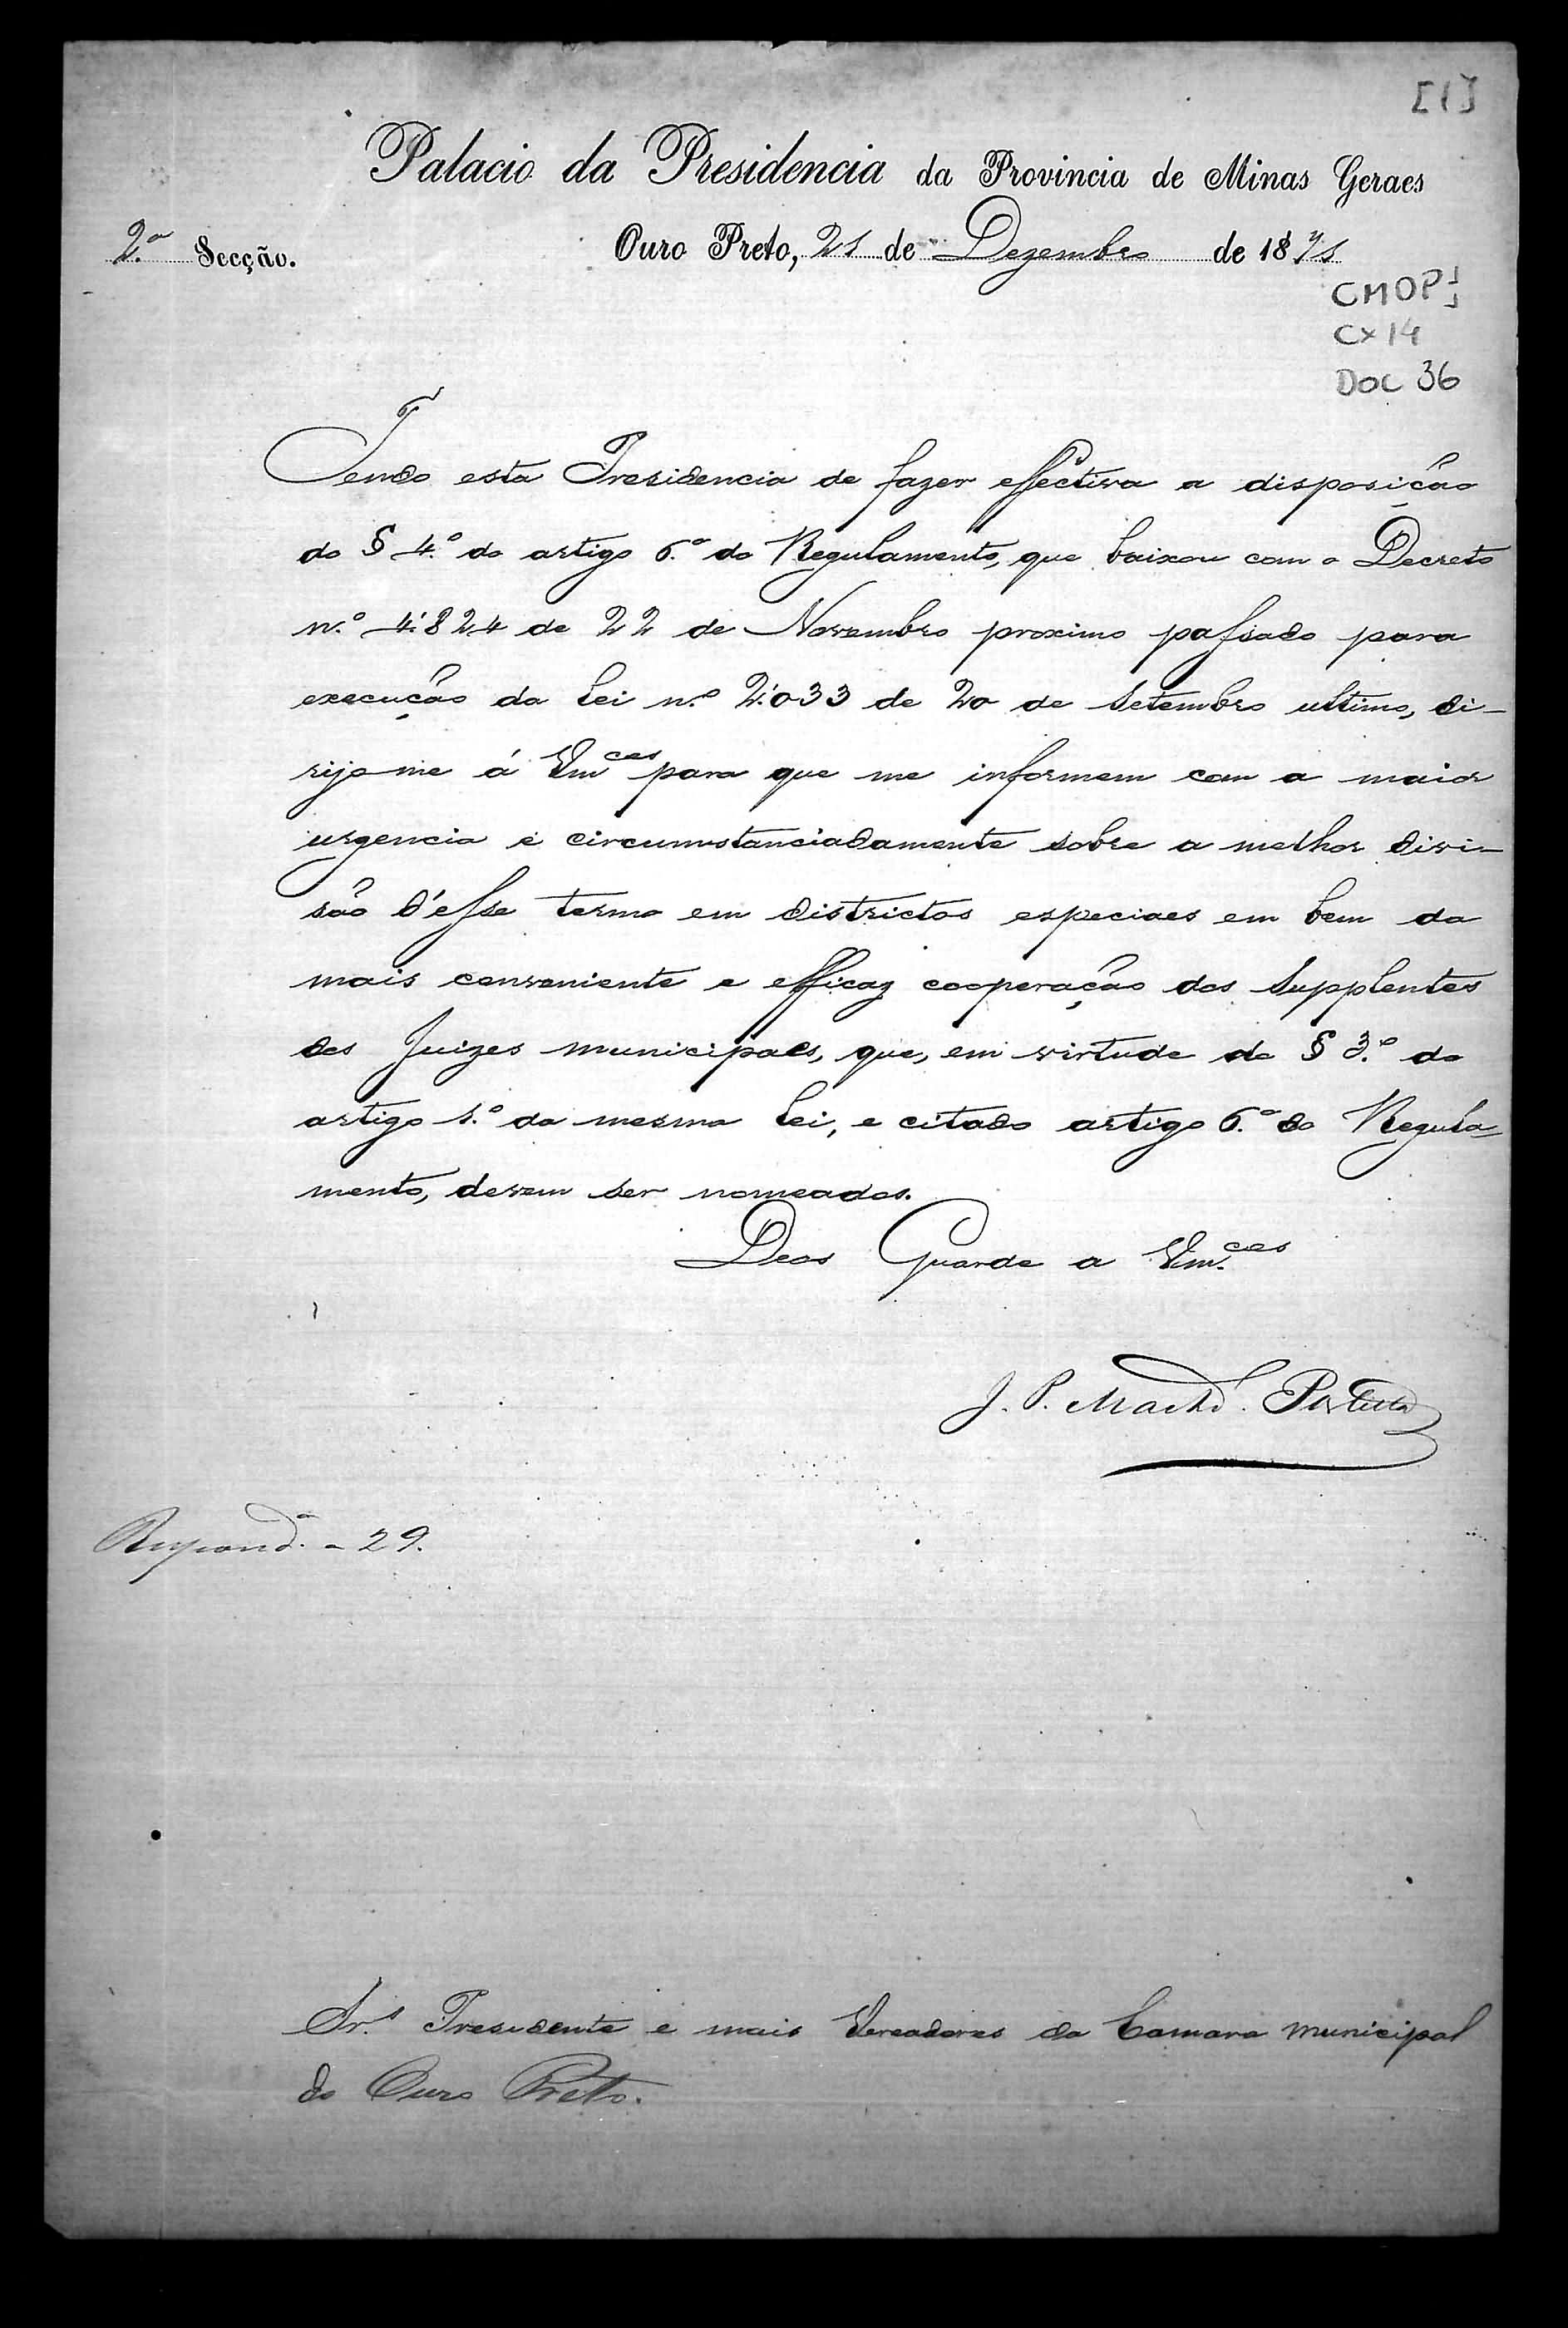 [1]
Palacio da Presidencia da Provincia de Minas Geraes
2.a Secção.
Ouro Preto, 21 de Dezembro de 1871
CMOP
CX 14
DOC 36
Tendo esta Presidencia de fazer effectiva a disposição
do § 4.º do artigo 6.º do Regulamento, que baixou com o Decreto
n.º 4.824 de 22 de Novembro proximo passado para
execução da Lei n.º 2.033 de 20 de Setembro ultimo, di-
rijo-me á Vm.ces para que me informem com a maior
urgencia e circumstanciadamente sobre a melhor divi-
são d'esse termo em districtos especiaes em bem da
mais conveniente e efficaz cooperação dos Supplentes
dos Juizes municipaes, que, em virtude do § 3.º do
artigo 1.º da mesma Lei, e citado artigo 6.º do Regula-
mento, devem ser nomeados.
Deos Guarde a Vm.ces
J. P. Machd.º Portella
Respond.ª - 29.
Sr.s Presidente e mais Vereadores da Camara municipal
do Ouro Preto.